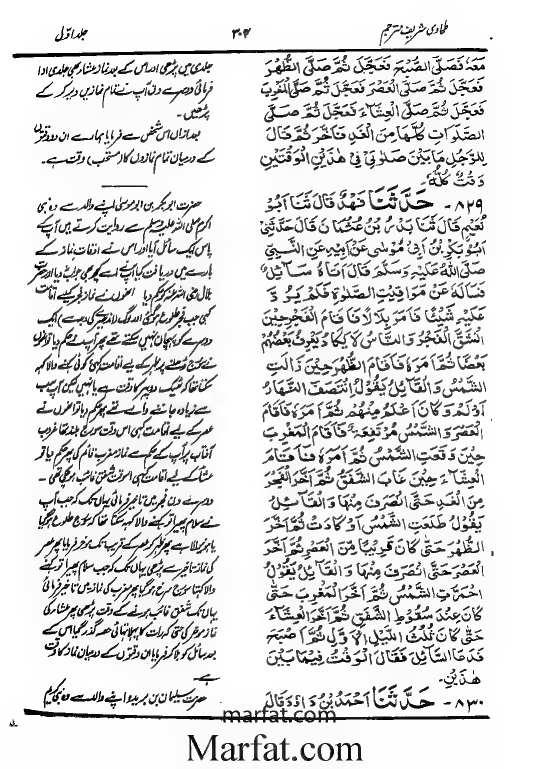 طحاوی شریف مترجم
۳۰۲
جلد اول
مَعَهٗ فَصَلَّی الصُّبْحَ فَعَجَّلَ ثُمَّ صَلَّی الظُّهْرَ
فَعَجَّلَ ثُمَّ صَلَّی الْعَصْرَ فَعَجَّلَ ثُمَّ صَلَّی الْمَغْرِبَ
فَعَجَّلَ ثُمَّ صَلَّی الْعِشَاءَ فَعَجَّلَ ثُمَّ صَلَّی
الصَّلَوَاتِ كُلَّهَا مِنَ الْغَدِ فَاَخَّرَ ثُمَّ قَالَ
لِلرَّجُلِ مَا بَیْنَ صَلٰوتِیْ فِیْ هٰذَیْنِ الْوَقْتَیْنِ
وَقْتٌ كُلُّهٗ۔
۸۲۹۔ حَدَّثَنَا فَهْدٌ قَالَ ثَنَا اَبُوْ
نُعَیْمٍ قَالَ ثَنَا بَدْرُ بْنُ عُثْمَانَ قَالَ حَدَّثَنِیْ
اَبُوْ بَكْرِ بْنِ اَبِیْ مُوْسٰی عَنْ اَبِیْهِ عَنِ النَّبِیِّ
صَلَّی اللهُ عَلَیْهِ وَسَلَّمَ قَالَ اَتَاهُ سَائِلٌ
فَسَاَلَهٗ عَنْ مَوَاقِیْتِ الصَّلٰوةِ فَلَمْ یَرُدَّ
عَلَیْهِ شَیْئًا فَاَمَرَ بِلَالًا فَاَقَامَ الْفَجْرَ حِیْنَ
انْشَقَّ الْفَجْرُ وَالنَّاسُ لَا یَكَادُ یَعْرِفُ بَعْضُهُمْ
بَعْضًا ثُمَّ اَمَرَهٗ فَاَقَامَ الظُّهْرَ حِیْنَ زَالَتِ
الشَّمْسُ وَالْقَائِلُ یَقُوْلُ انْتَصَفَ النَّهَارُ
اَوْ لَمْ وَكَانَ اَعْلَمَ مِنْهُمْ ثُمَّ اَمَرَهٗ فَاَقَامَ
الْعَصْرَ وَالشَّمْسُ مُرْتَفِعَةٌ فَاَقَامَ الْمَغْرِبَ
حِیْنَ وَقَعَتِ الشَّمْسُ ثُمَّ اَمَرَهٗ فَاَقَامَ
الْعِشَاءَ حِیْنَ غَابَ الشَّفَقُ ثُمَّ اَخَّرَ الْفَجْرَ
مِنَ الْغَدِ حَتَّی انْصَرَفَ مِنْهَا وَالْقَائِلُ
یَقُوْلُ طَلَعَتِ الشَّمْسُ اَوْ كَادَتْ ثُمَّ اَخَّرَ
الظُّهْرَ حَتّٰی كَانَ قَرِیْبًا مِّنَ الْعَصْرِ ثُمَّ اَخَّرَ
الْعَصْرَ حَتَّی انْصَرَفَ مِنْهَا وَالْقَائِلُ یَقُوْلُ
احْمَرَّتِ الشَّمْسُ ثُمَّ اَخَّرَ الْمَغْرِبَ حَتّٰی
كَانَ عِنْدَ سُقُوْطِ الشَّفَقِ ثُمَّ اَخَّرَ الْعِشَاءَ
حَتّٰی كَانَ ثُلُثُ اللَّیْلِ الْاَوَّلِ ثُمَّ اَصْبَحَ
فَدَعَا السَّائِلَ فَقَالَ الْوَقْتُ فِیْمَا بَیْنَ
هٰذَیْنِ۔
۸۳۰۔ حَدَّثَنَا اَحْمَدُ بْنُ دَاوٗدَ قَالَ
جلدی میں پڑھی اور اس کے بعد نماز عشاء بھی جلدی ادا
فرمائی دوسرے دن آپ نے تمام نمازیں دیر کر کے
پڑھیں۔
بعد ازاں اس شخص سے فرمایا ہمارے ان دو وقتوں
کے درمیان تمام نمازوں کا (مستحب) وقت ہے۔
حضرت ابوبکر بن ابو موسیٰ اپنے والد سے وہ نبی
اکرم صلی اللہ علیہ وسلم سے روایت کرتے ہیں آپ کے
پاس ایک سائل آیا اور اس نے اوقات نماز کے
بارے میں دریافت کیا آپ نے اسے کچھ بھی جواب نہ دیا اور حضرت
بلال رضی اللہ عنہ کو حکم دیا انھوں نے نماز فجر کیلئے اقامت
کہی جب فجر طلوع ہو گئی اور لوگ (اندھیرے کی وجہ سے) ایک
دوسرے کو پہچان نہیں سکتے تھے پھر آپ نے حکم دیا تو انھوں
نے سورج ڈھلنے پر ظہر کے لیے اقامت کہی کوئی کہنے والا کہہ
سکتا تھا کہ ٹھیک دوپہر کا وقت ہے یا نہیں لیکن آپ سب
سے زیادہ جاننے والے تھے پھر حکم دیا تو انھوں نے
عصر کے لیے اقامت کہی اس وقت سورج بلند تھا غروب
آفتاب پر آپ کے حکم سے نماز مغرب قائم کی پھر حکم دیا تو
عشاء کے لیے اقامت کہی اسوقت شفق غائب ہو چکی تھی۔
دوسرے دن فجر میں تاخیر فرمائی یہاں تک کہ جب آپ
نے سلام پھیرا تو کہنے والا کہہ سکتا تھا کہ سورج طلوع ہو گیا
یا ہونے والا ہے پھر ظہر کو عصر کے قریب تک موخر فرمایا پھر عصر
کی نماز تاخیر سے پڑھی یہاں تک کہ جب سلام پھیرا تو کہنے
والا کہتا سورج سرخ ہو گیا پھر مغرب کی نماز میں تاخیر فرمائی
یہاں تک شفق غائب ہونے کے وقت پڑھی پھر عشاء کی
نماز موخر کی حتیٰ کہ رات کا پہلا تہائی حصہ گزر گیا اس کے
بعد سائل کو بلا کر فرمایا ان دو وقتوں کے درمیان نماز کا وقت
ہے
حضرت سلیمان بن بریدہ اپنے والد سے وہ نبی کریم
marfat.com
Marfat.com